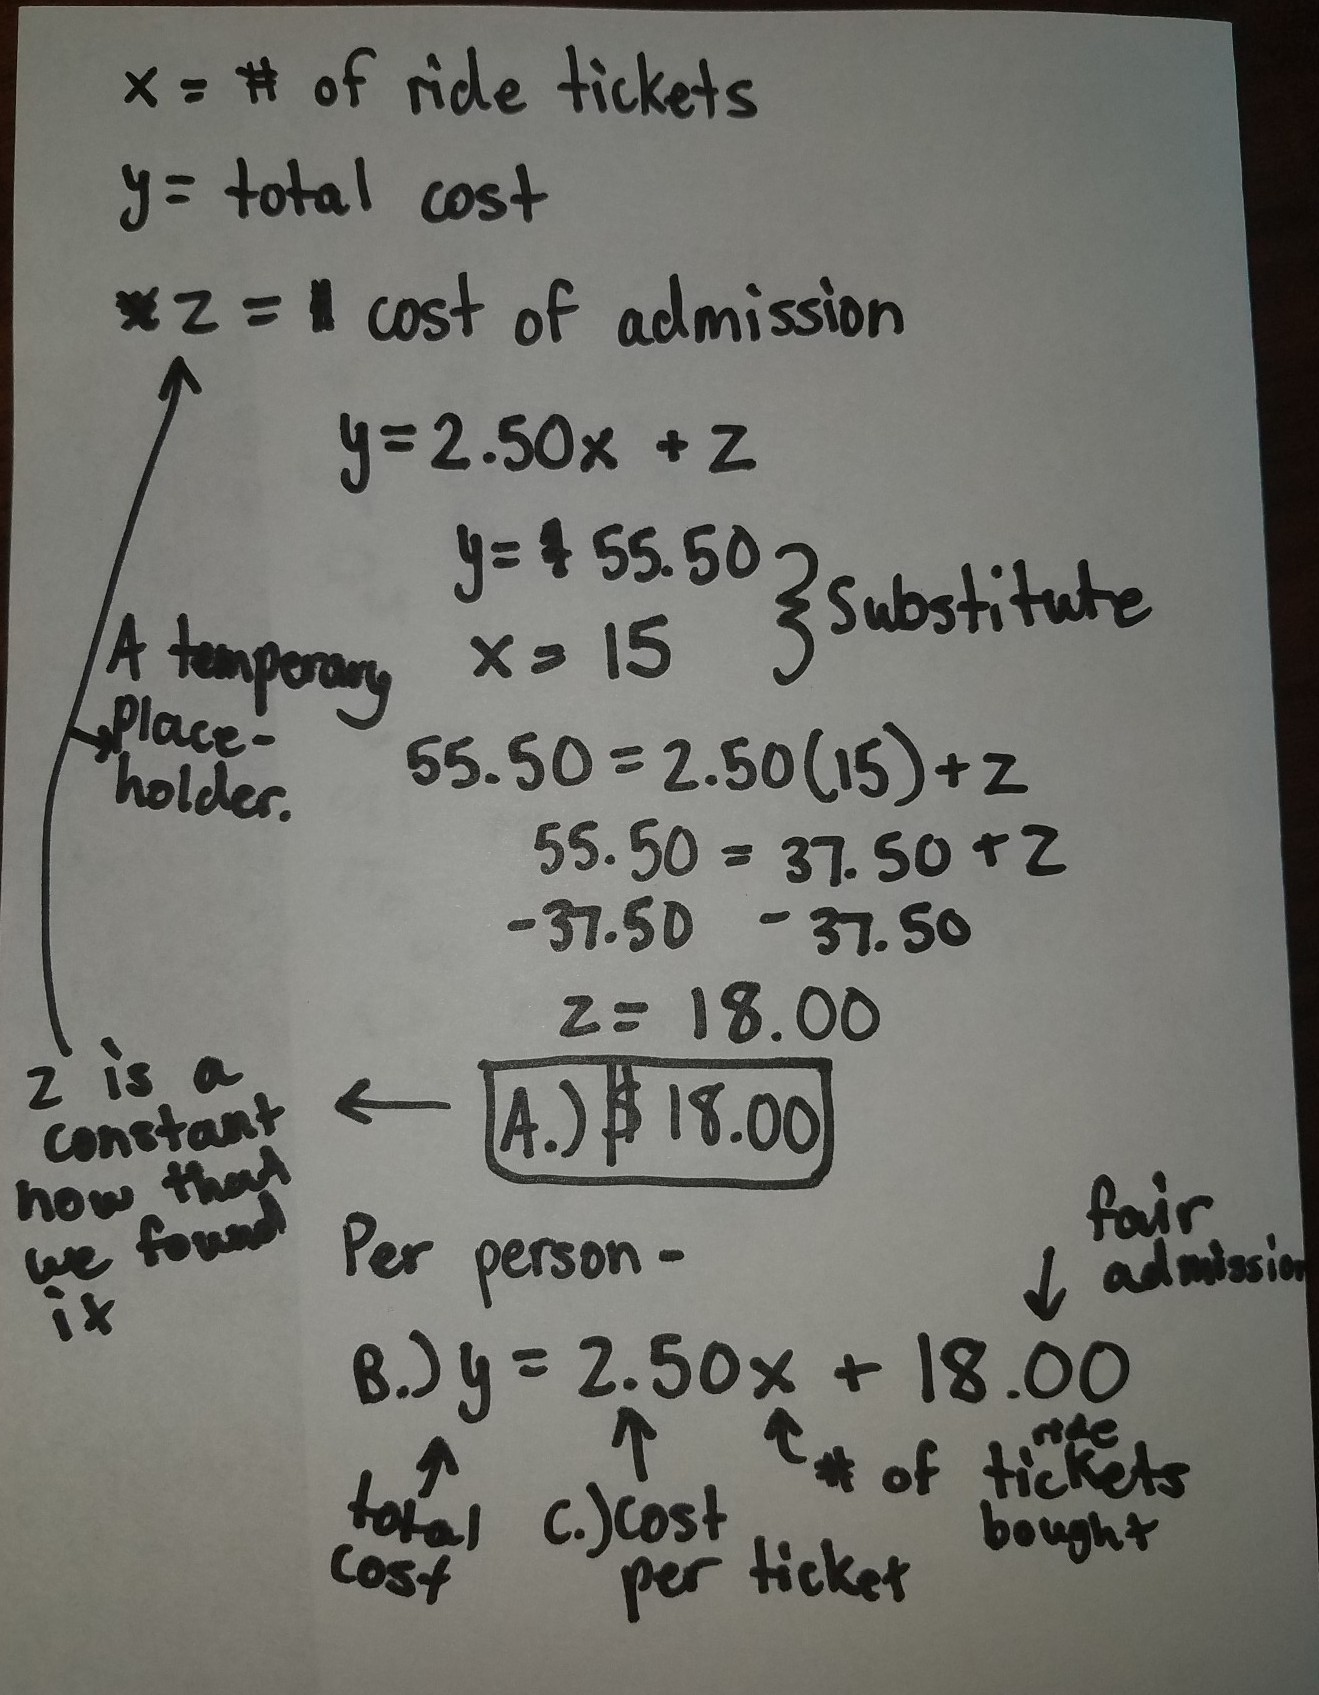 x = # of ride tickets
y = total cost
z = cost of admission
y = 2.50x + z
y = $ 55.50
x = 15
} Substitute
A temperary
Place-
holder.
55.50 = 2.50(15) + z
55.50 = 37.50 + z
-37.50 - 37.50
z = 18.00
A.) $ 18.00
←
z is a
constant
now that
we found
it
Per person -
fair
admission
B.) y = 2.50x + 18.00
total
cost
C.) cost
per ticket
# of ride tickets
bought